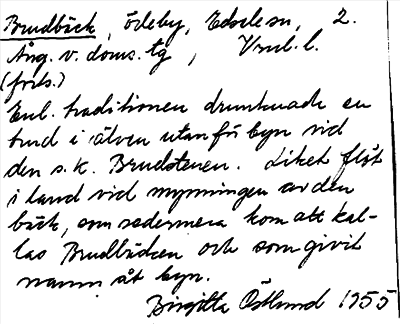 Brudbäck, ödeby, Edsele sn, 2.
Ång. v. doms. tg, Vnrl. l.
(forts.)
Enl. traditionen drunknade en
brud i älven utanför byn vid
den s.k. Brudstenen. Liket flöt
i land vid mynningen av den
bäck, som sedermera kom att kal-
las Brudbäcken och som givit
namn åt byn.
Birgitta Östlund 1955